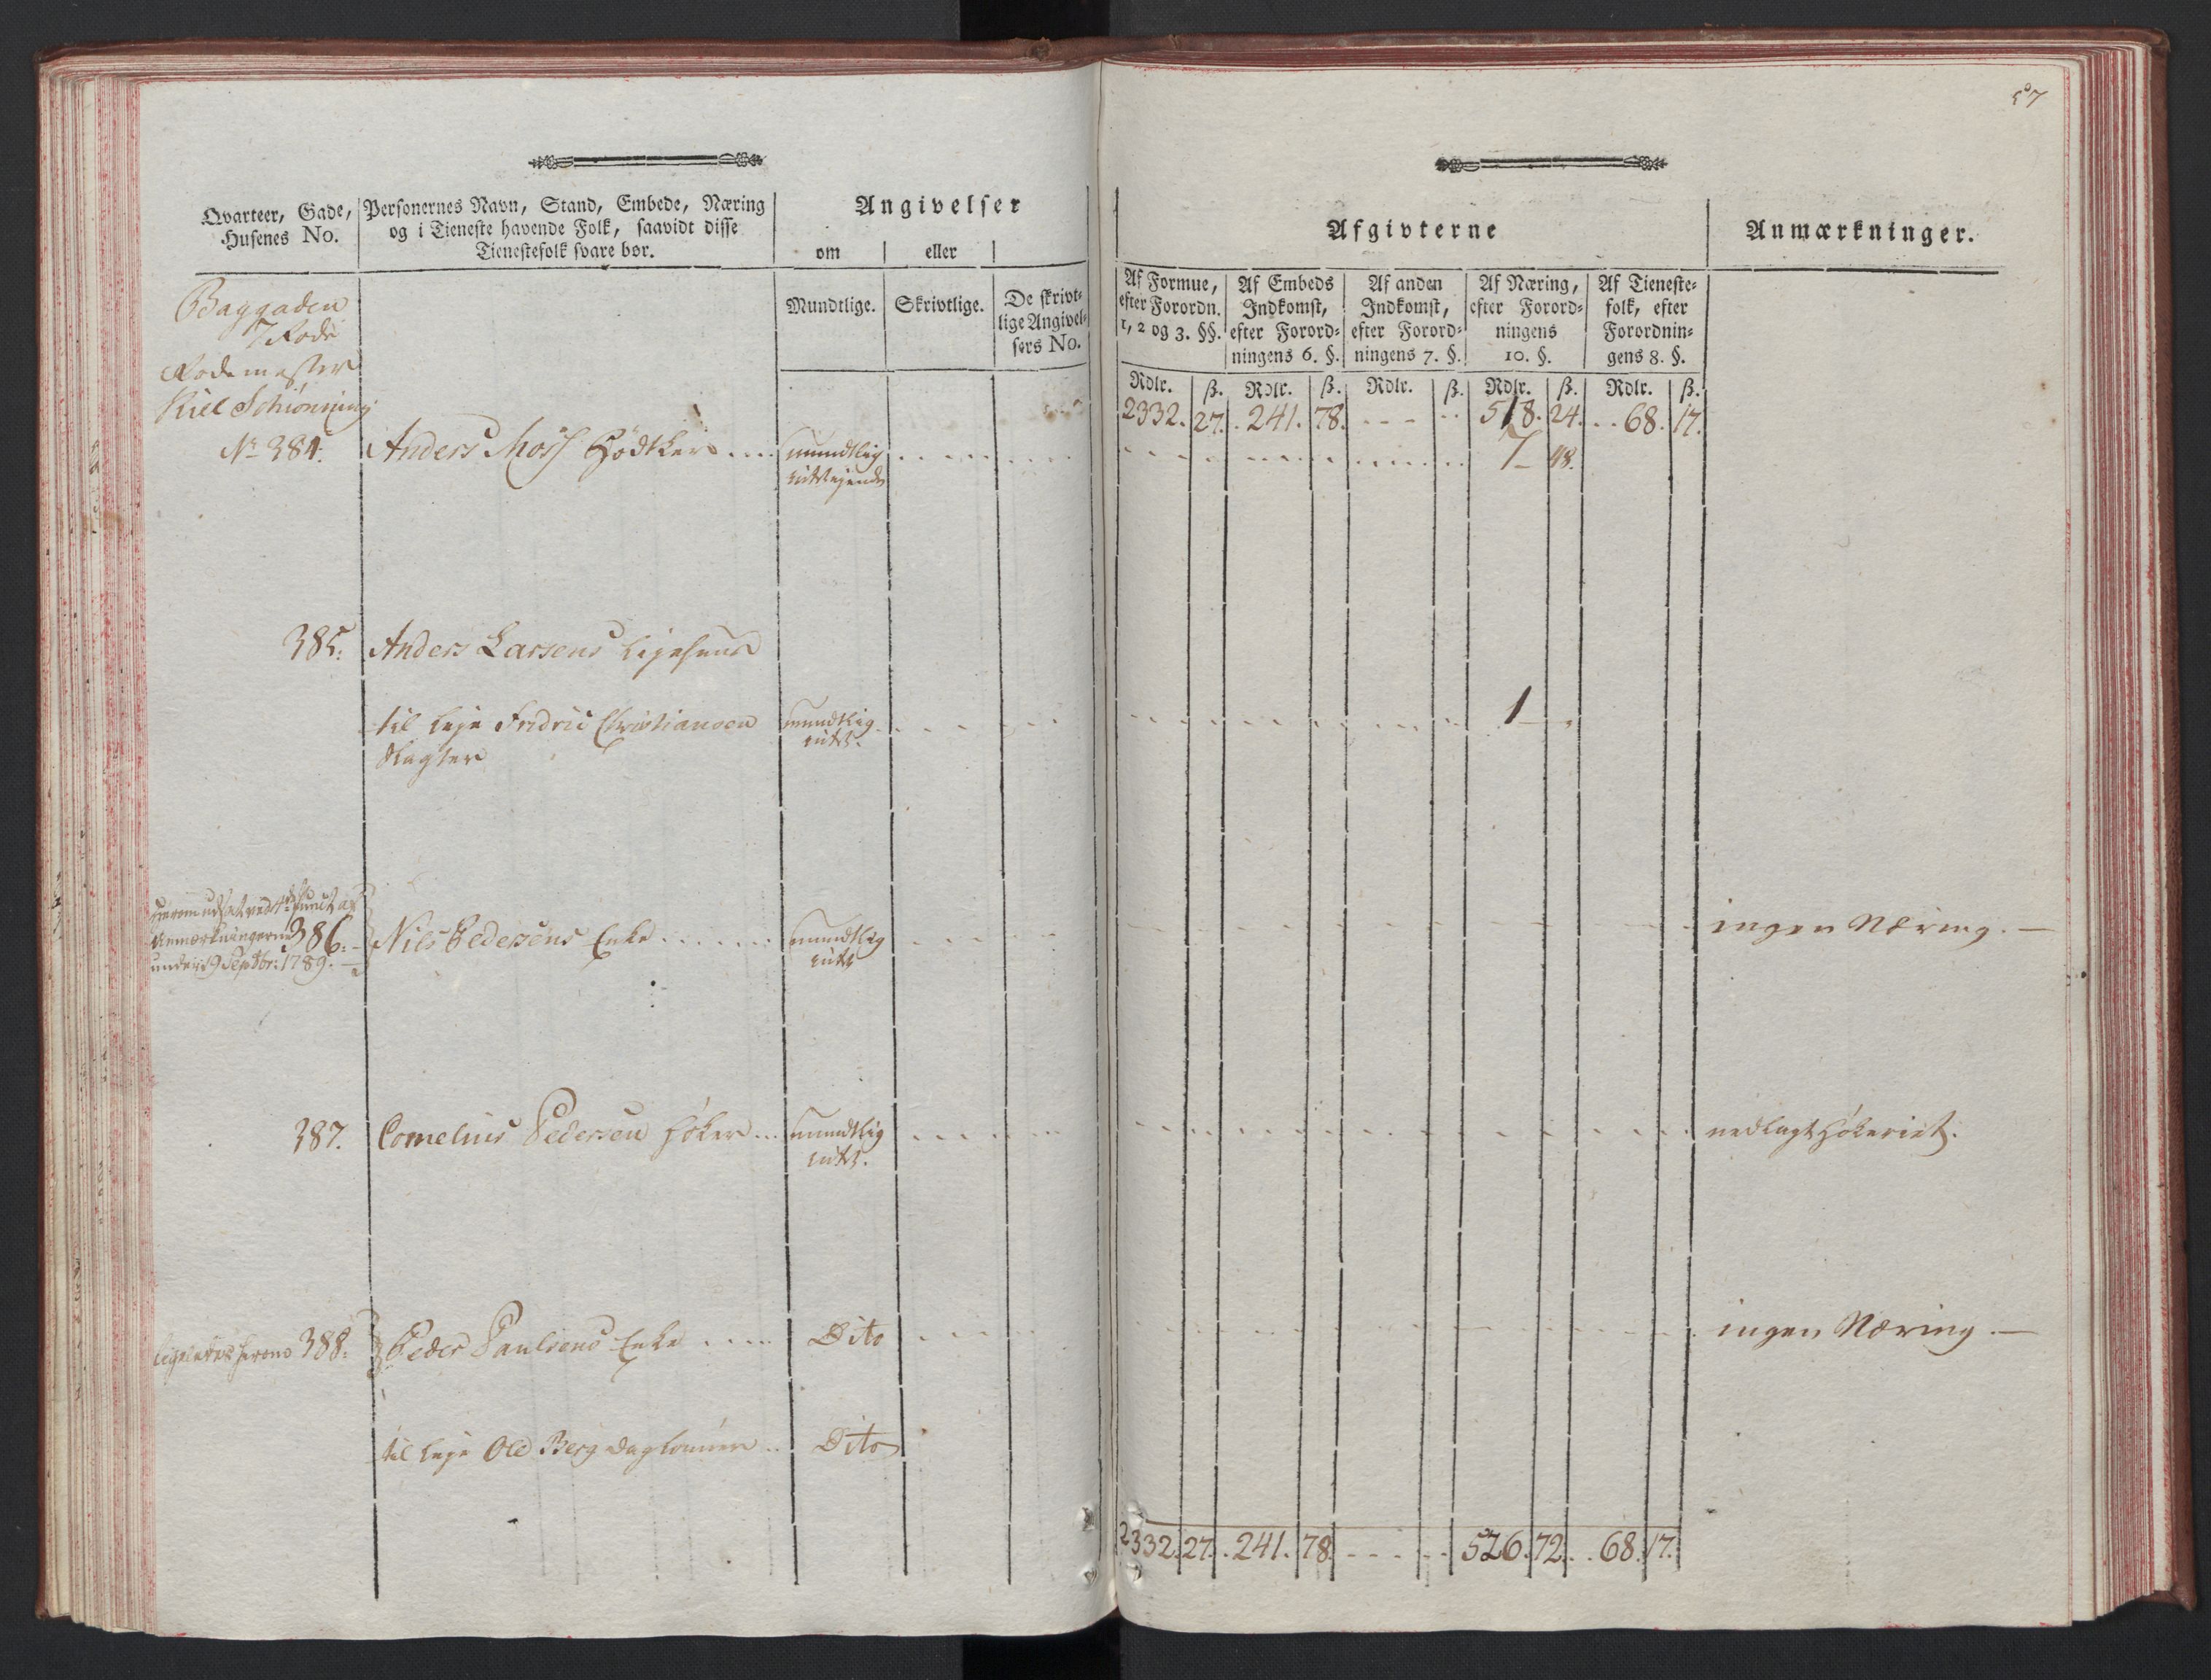 57
Qvarteer, Gade,
Husenes No.
Personernes Navn, Stand, Embede, Næring
og i Tieneste havende Folk, saavidt disse
Tienestefolk svare bør.
Angivelser
om
eller
Mundtlige.
Skrivtlige.
De skrivt-
lige Angivel-
sers No.
Afgivterne
Anmærkninger.
Af Formue,
efter Forordn.
1, 2 og 3. §§.
Af Embeds
Indkomst,
efter Forord-
ningens 6. §.
Af anden
Indkomst,
efter Forord-
ningens 7. §.
Af Næring,
efter Forord-
ningens
10. §.
Af Tieneste-
folk, efter
Forordnin-
gens 8. §.
Rdlr. ß. Rdlr. ß. Rdlr. ß. Rdlr. ß. Rdlr. ß.
Baggaden
7 Rode
Rodemester
Kiil Schiønning
2332. 27. 241. 78. 518. 24. 68. 17.
No 384. Anders Moss Bødtker mundtlig 7 48.
385. Anders Larsens
til leje Fridric Christiansen mundtlig 1
Slagter
under 19 Septbr: 1789.
386. Nils Pedersens Enke mundtlig ingen Næring.
387. Cornelius Pedersen Høker mundtlig nedlagt Høkeriet.
388. Peder Paulsens Enke Dito ingen Næring.
til leje Ole Berg Dito
2332. 27. 241. 78. 526. 72. 68. 17.